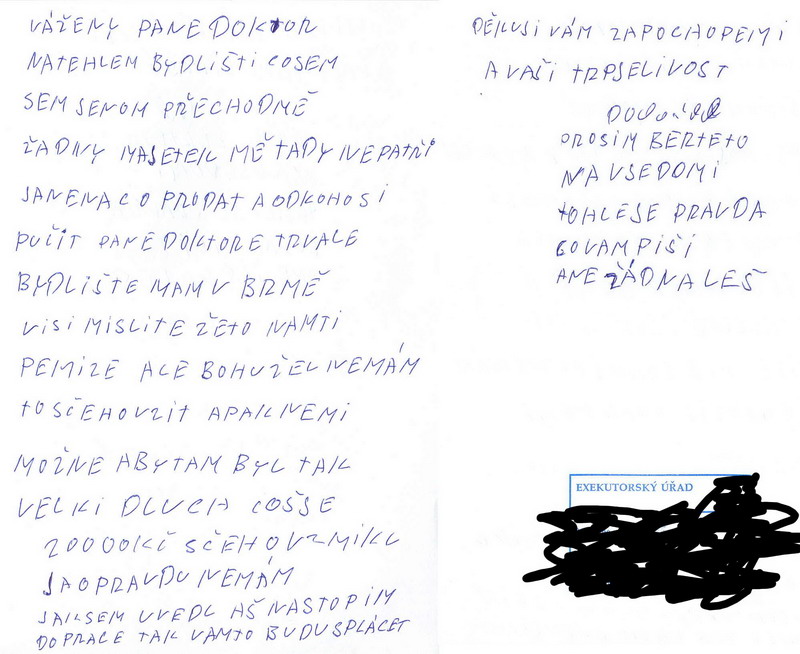 VÁŽENY PANE DOKTOR
NATEHLEM BYDLIŠTI COSEM
SEM JENOM PŘECHODMĚ
ŽADNY MAJETEK MĚ TADY NEPATŘI
JANENA CO PRODAT A ODKOHOSI
PUČIT PANE DOKTORE TRVALE
BYDLIŠTE MAM V BRMĚ
VISI MISLITE ŽETO NAMTI
PEMIZE ALE BOHUŽEL NEMÁM
TOSČEHOVZIT APAK NEMI
MOŽNE ABYTAM BYL TAK
VELKI DLUCH COŠJE
20000KČ SČEHO VZMIKL
JAOPRAVDU NEMÁM
JAKSEM UVEDL AŠ NASTOPIM
DO PRACE TAK VAMTO BUDU SPLÁCET
DĚKUSI VÁM ZAPOCHOPEMI
A VAŠI TRPJELIVOST
PROSIM BERTETO
NA VJEDOMI
TOHLEJE PRAVDA
COVAM PIŠI
ANE ŽÁDNA LEŠ
EXEKUTORSKÝ ÚŘAD